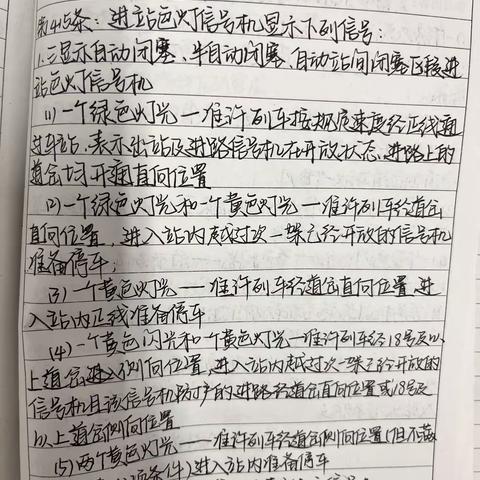 第415条：进站色灯信号机显示下列信号：
1.三显示自动闭塞、半自动闭塞、自动站间闭塞区段进
站色灯信号机
(1)一个绿色灯光—准许列车按规定速度经正线通
过车站，表示出站及进路信号机在开放状态，进路上的
道岔均开通直向位置
(2)一个绿色灯光和一个黄色灯光—准许列车经道岔
直向位置，进入站内越过次一架已经开放的信号机
准备停车；
(3)一个黄色灯光—准许列车经道岔直向位置，进
入站内正线准备停车
(4)一个黄色闪光和一个黄色灯光—准许列车经18号及以
上道岔进入侧向位置，进入站内越过次一架已经开放的
信号机且该信号机防护的进路经道岔直向位置或18号及
以上道岔侧向位置
(5)两个黄色灯光——准许列车经道岔侧向位置(但不满
项条件)进入站内准备停车